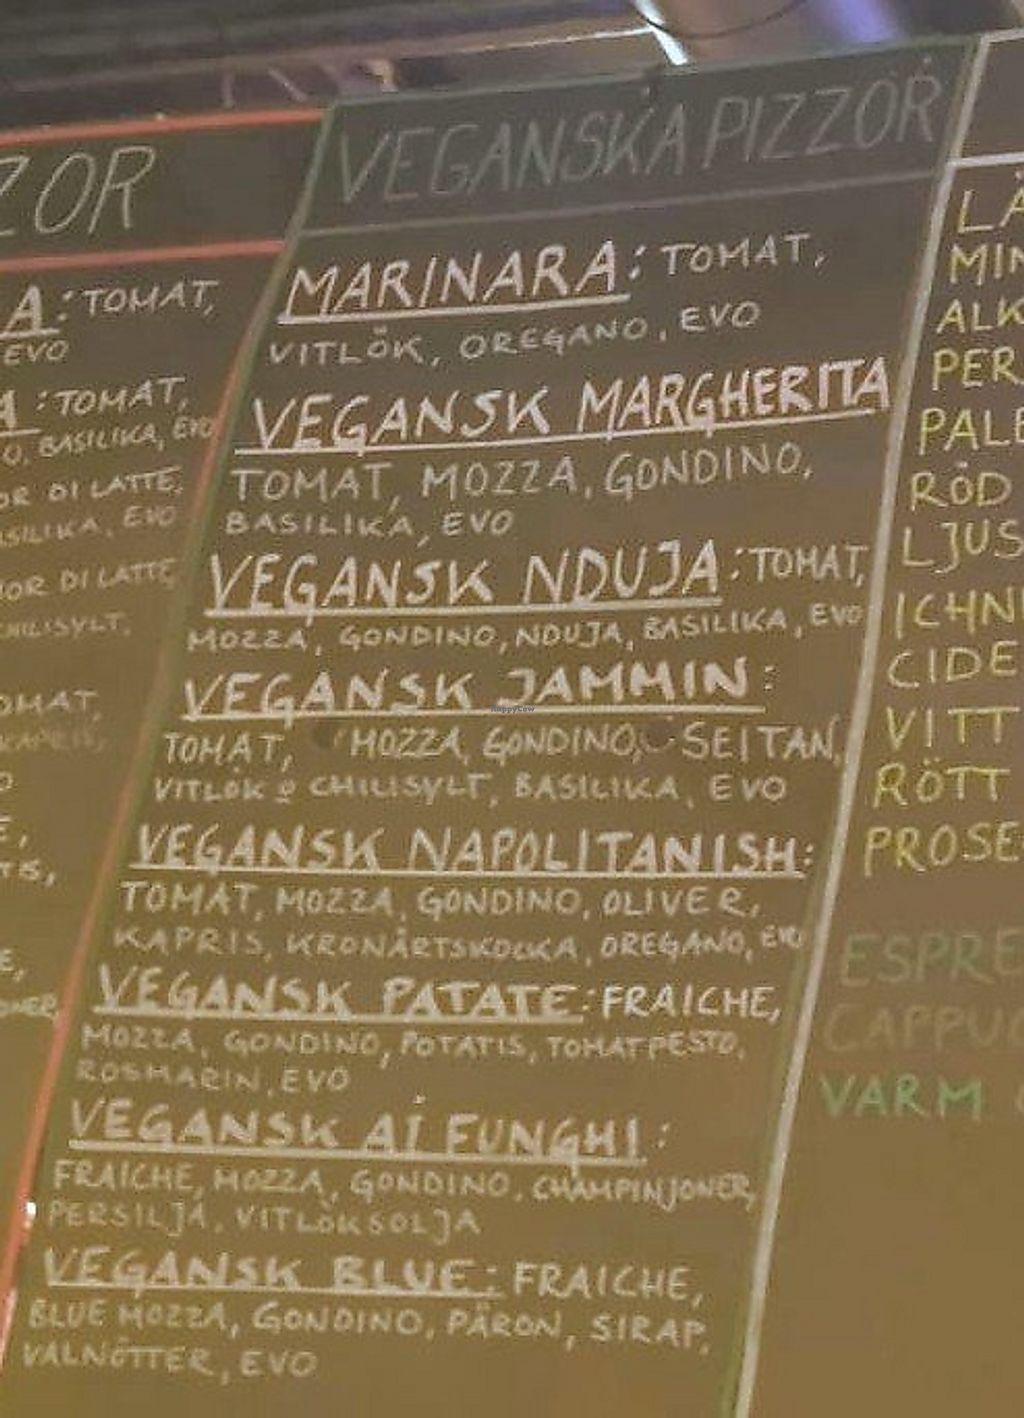 ZOR
A: TOMAT,
EVO
A: TOMAT,
O, BASILIKA, EVO
OR DI LATTE,
ASILIKA, EVO
IOR DI LATTE,
CHILISYLT,
OMAT,
O
E,
TIS,
E,
VEGANSKA PIZZOR
MARINARA: TOMAT,
VITLÖK, OREGANO, EVO
VEGANSK MARGHERITA
TOMAT, MOZZA, GONDINO,
BASILIKA, EVO
VEGANSK NDUJA: TOMAT,
MOZZA, GONDINO, NDUJA, BASILIKA, EVO
VEGANSK JAMMIN:
TOMAT, MOZZA, GONDINO, SEITAN,
VITLÖK O CHILISYLT, BASILIKA, EVO
VEGANSK NAPOLITANISH:
TOMAT, MOZZA, GONDINO, OLIVER,
KAPRIS, KRONÄRTSKOCKA, OREGANO, EVO
VEGANSK PATATE: FRAICHE,
MOZZA, GONDINO, POTATIS, TOMATPESTO,
ROSMARIN, EVO
VEGANSK AI FUNGHI:
FRAICHE, MOZZA, GONDINO, CHAMPINJONER,
PERSILJA, VITLÖKSOLJA
VEGANSK BLUE: FRAICHE,
BLUE MOZZA, GONDINO, PÄRON, SIRAP,
VALNÖTTER, EVO
LÄ
MIN
ALK
PER
PALE
RÖD
LJUS
ICHN
CIDE
VITT
RÖTT
PROSE
ESPRE
CAPPUC
VARM
HappyCow